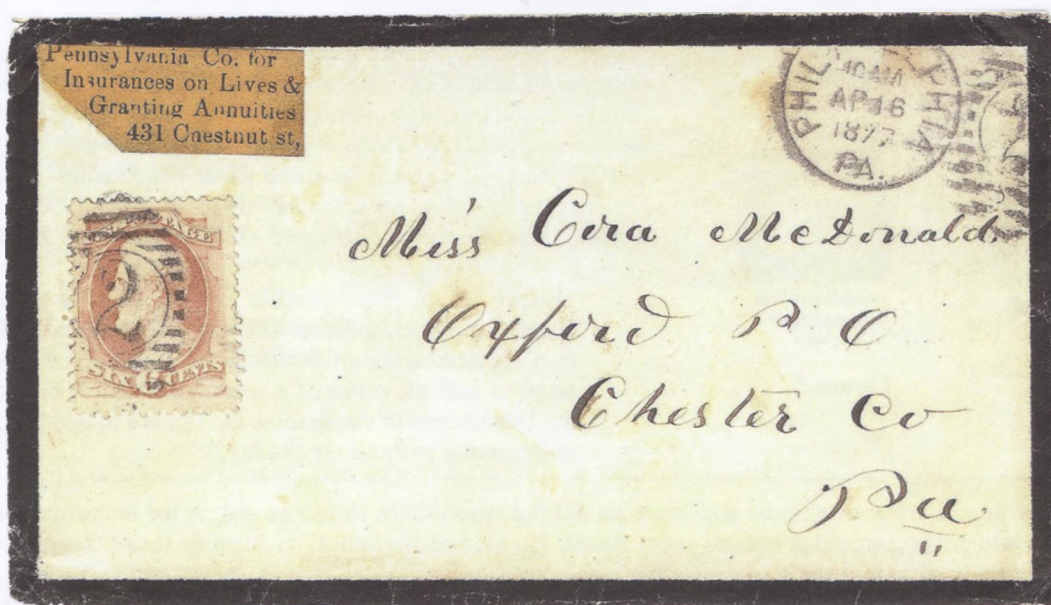 Pennsylvania Co. for
Insurances on Lives &
Granting Annuities
431 Chestnut st,
PHILADELPHIA
10 AM
AP 16
1877
PA.
2
POSTAGE
2
SIX 6 CENTS
Miss Cora McDonald
Oxford P O
Chester Co
Pa